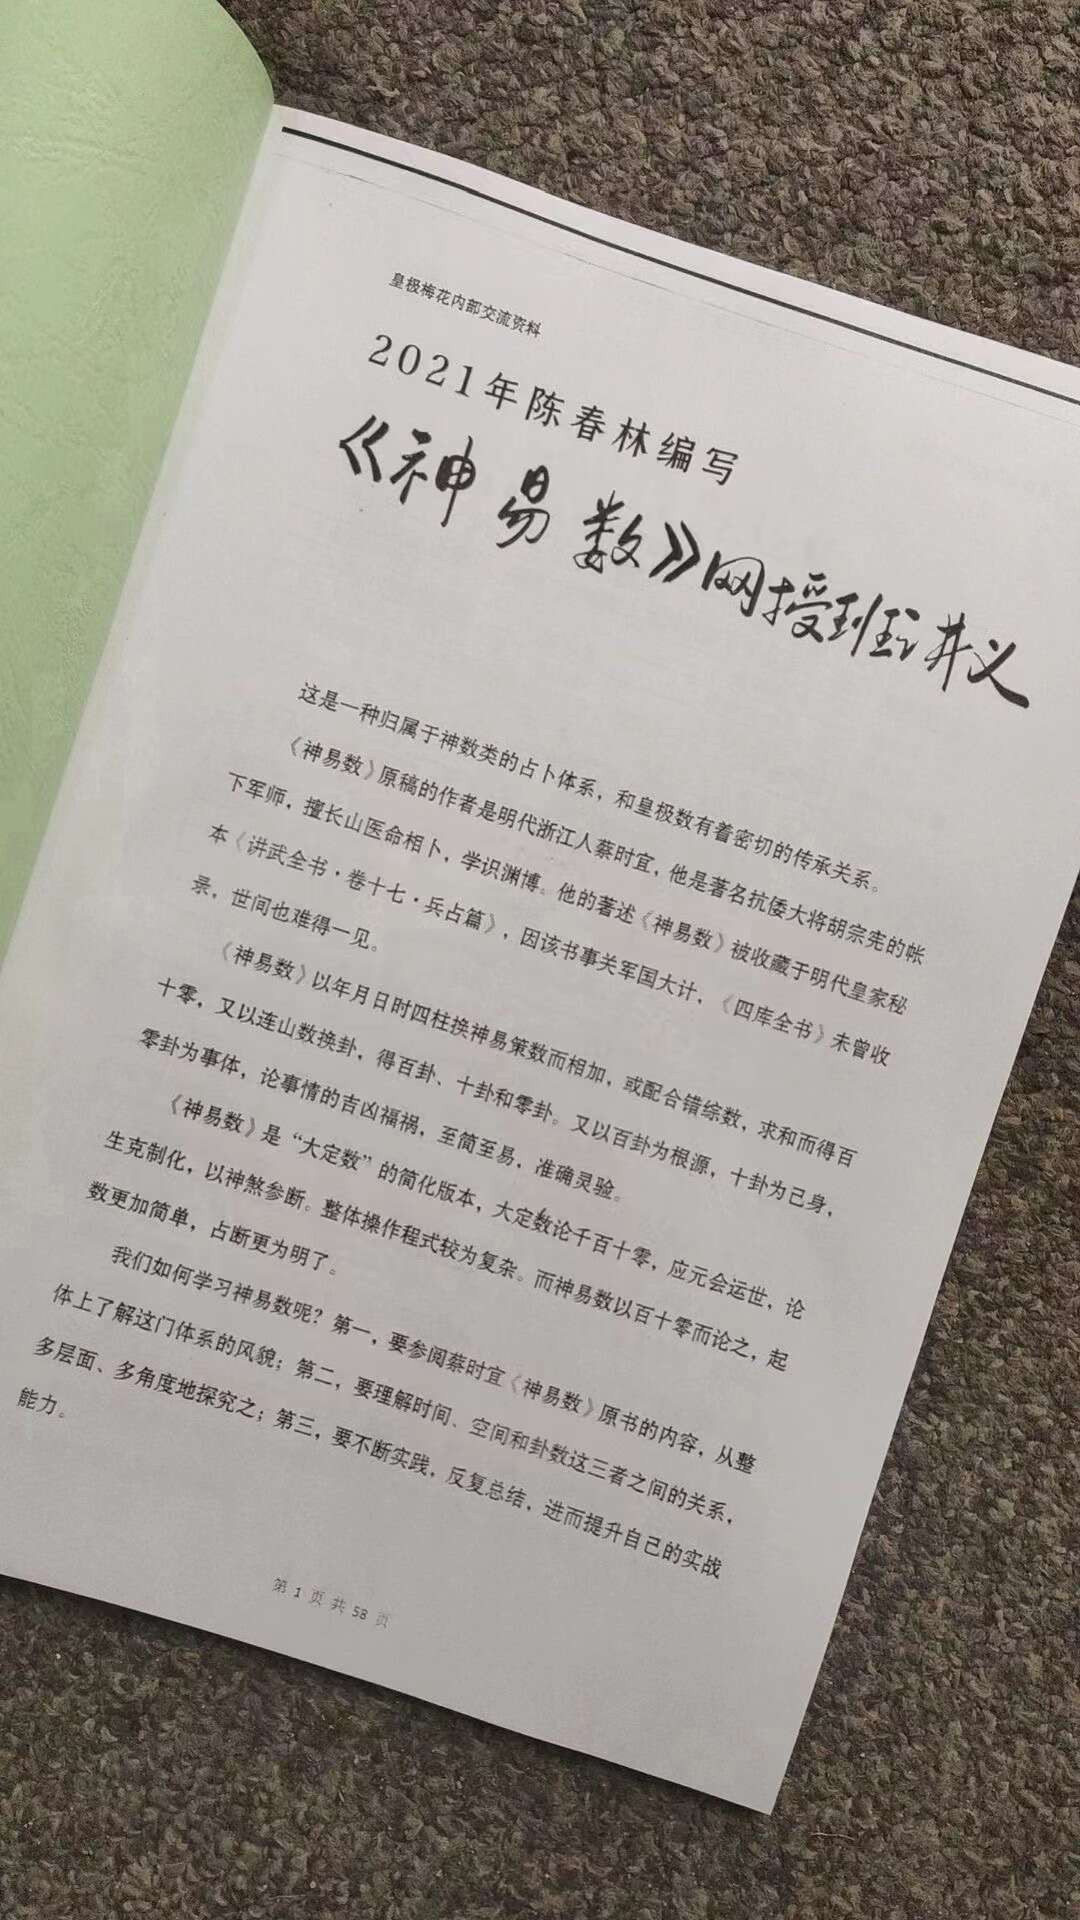 皇极梅花内部交流资料
2021年陈春林编写
《神易数》网授班讲义
这是一种归属于神数类的占卜体系，和皇极数有着密切的传承关系。
《神易数》原稿的作者是明代浙江人蔡时宜，他是著名抗倭大将胡宗宪的帐
下军师，擅长山医命相卜，学识渊博。他的著述《神易数》被收藏于明代皇家秘
本《讲武全书·卷十七·兵占篇》，因该书事关军国大计，《四库全书》未曾收
录，世间也难得一见。
《神易数》以年月日时四柱换神易策数而相加，或配合错综数，求和而得百
十零，又以连山数换卦，得百卦、十卦和零卦。又以百卦为根源，十卦为己身，
零卦为事体，论事情的吉凶福祸，至简至易，准确灵验。
《神易数》是“大定数”的简化版本，大定数论千百十零，应元会运世，论
生克制化，以神煞参断。整体操作程式较为复杂。而神易数以百十零而论之，起
数更加简单，占断更为明了。
我们如何学习神易数呢？第一，要参阅蔡时宜《神易数》原书的内容，从整
体上了解这门体系的风貌；第二，要理解时间、空间和卦数这三者之间的关系，
多层面、多角度地探究之；第三，要不断实践，反复总结，进而提升自己的实战
能力。
第 1 页 共 58 页